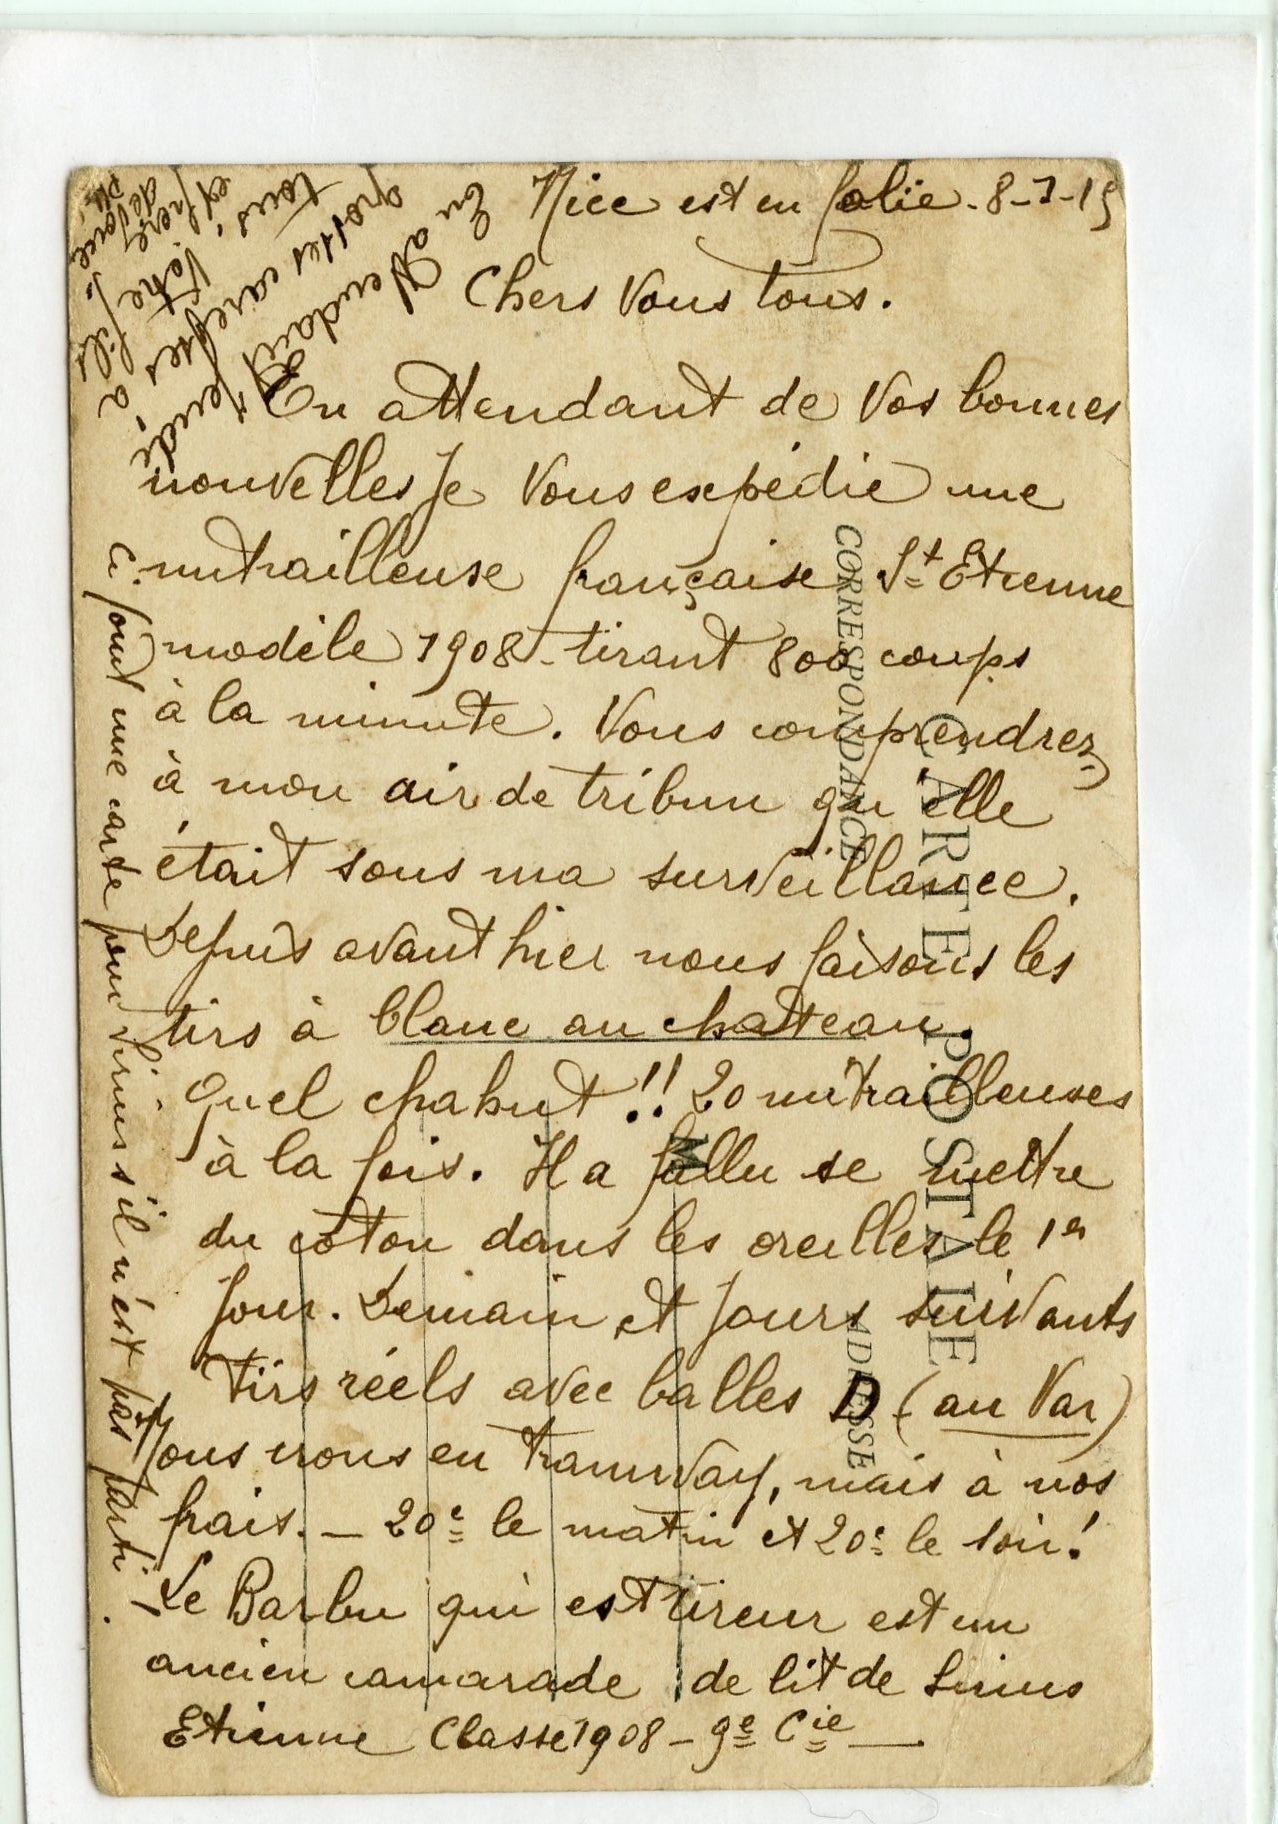 Nice est en folie. 8-7-15
Chers Vous tous.
En attendant de Vos bonnes
nouvelles je Vous expédie une
mitrailleuse française St Etienne
modèle 1908 - tirant 800 coups
à la minute. Vous comprendrez
à mon air de tribun qu'elle
était sous ma surveillance.
Depuis avant hier nous faisons les
tirs à blanc au chatteau.
Quel chahut!! 20 mitrailleuses
à la fois. Il a fallu se mettre
du coton dans les oreilles le 1er
jour. Demain et jours suivants
Tirs réels avec balles D (au Var)
Nous irons en tramway, mais à nos
frais. — 20c le matin et 20c le soir!
Le Barbu qui est tireur est un
ancien camarade de lit de
Etienne Classe 1908 - 9e Cie —
ci joint une carte pour s'il n'est pas parti.
En attendant
grosses caresses à
tous
Votre fils
CARTE POSTALE
CORRESPONDANCE
ADRESSE
M